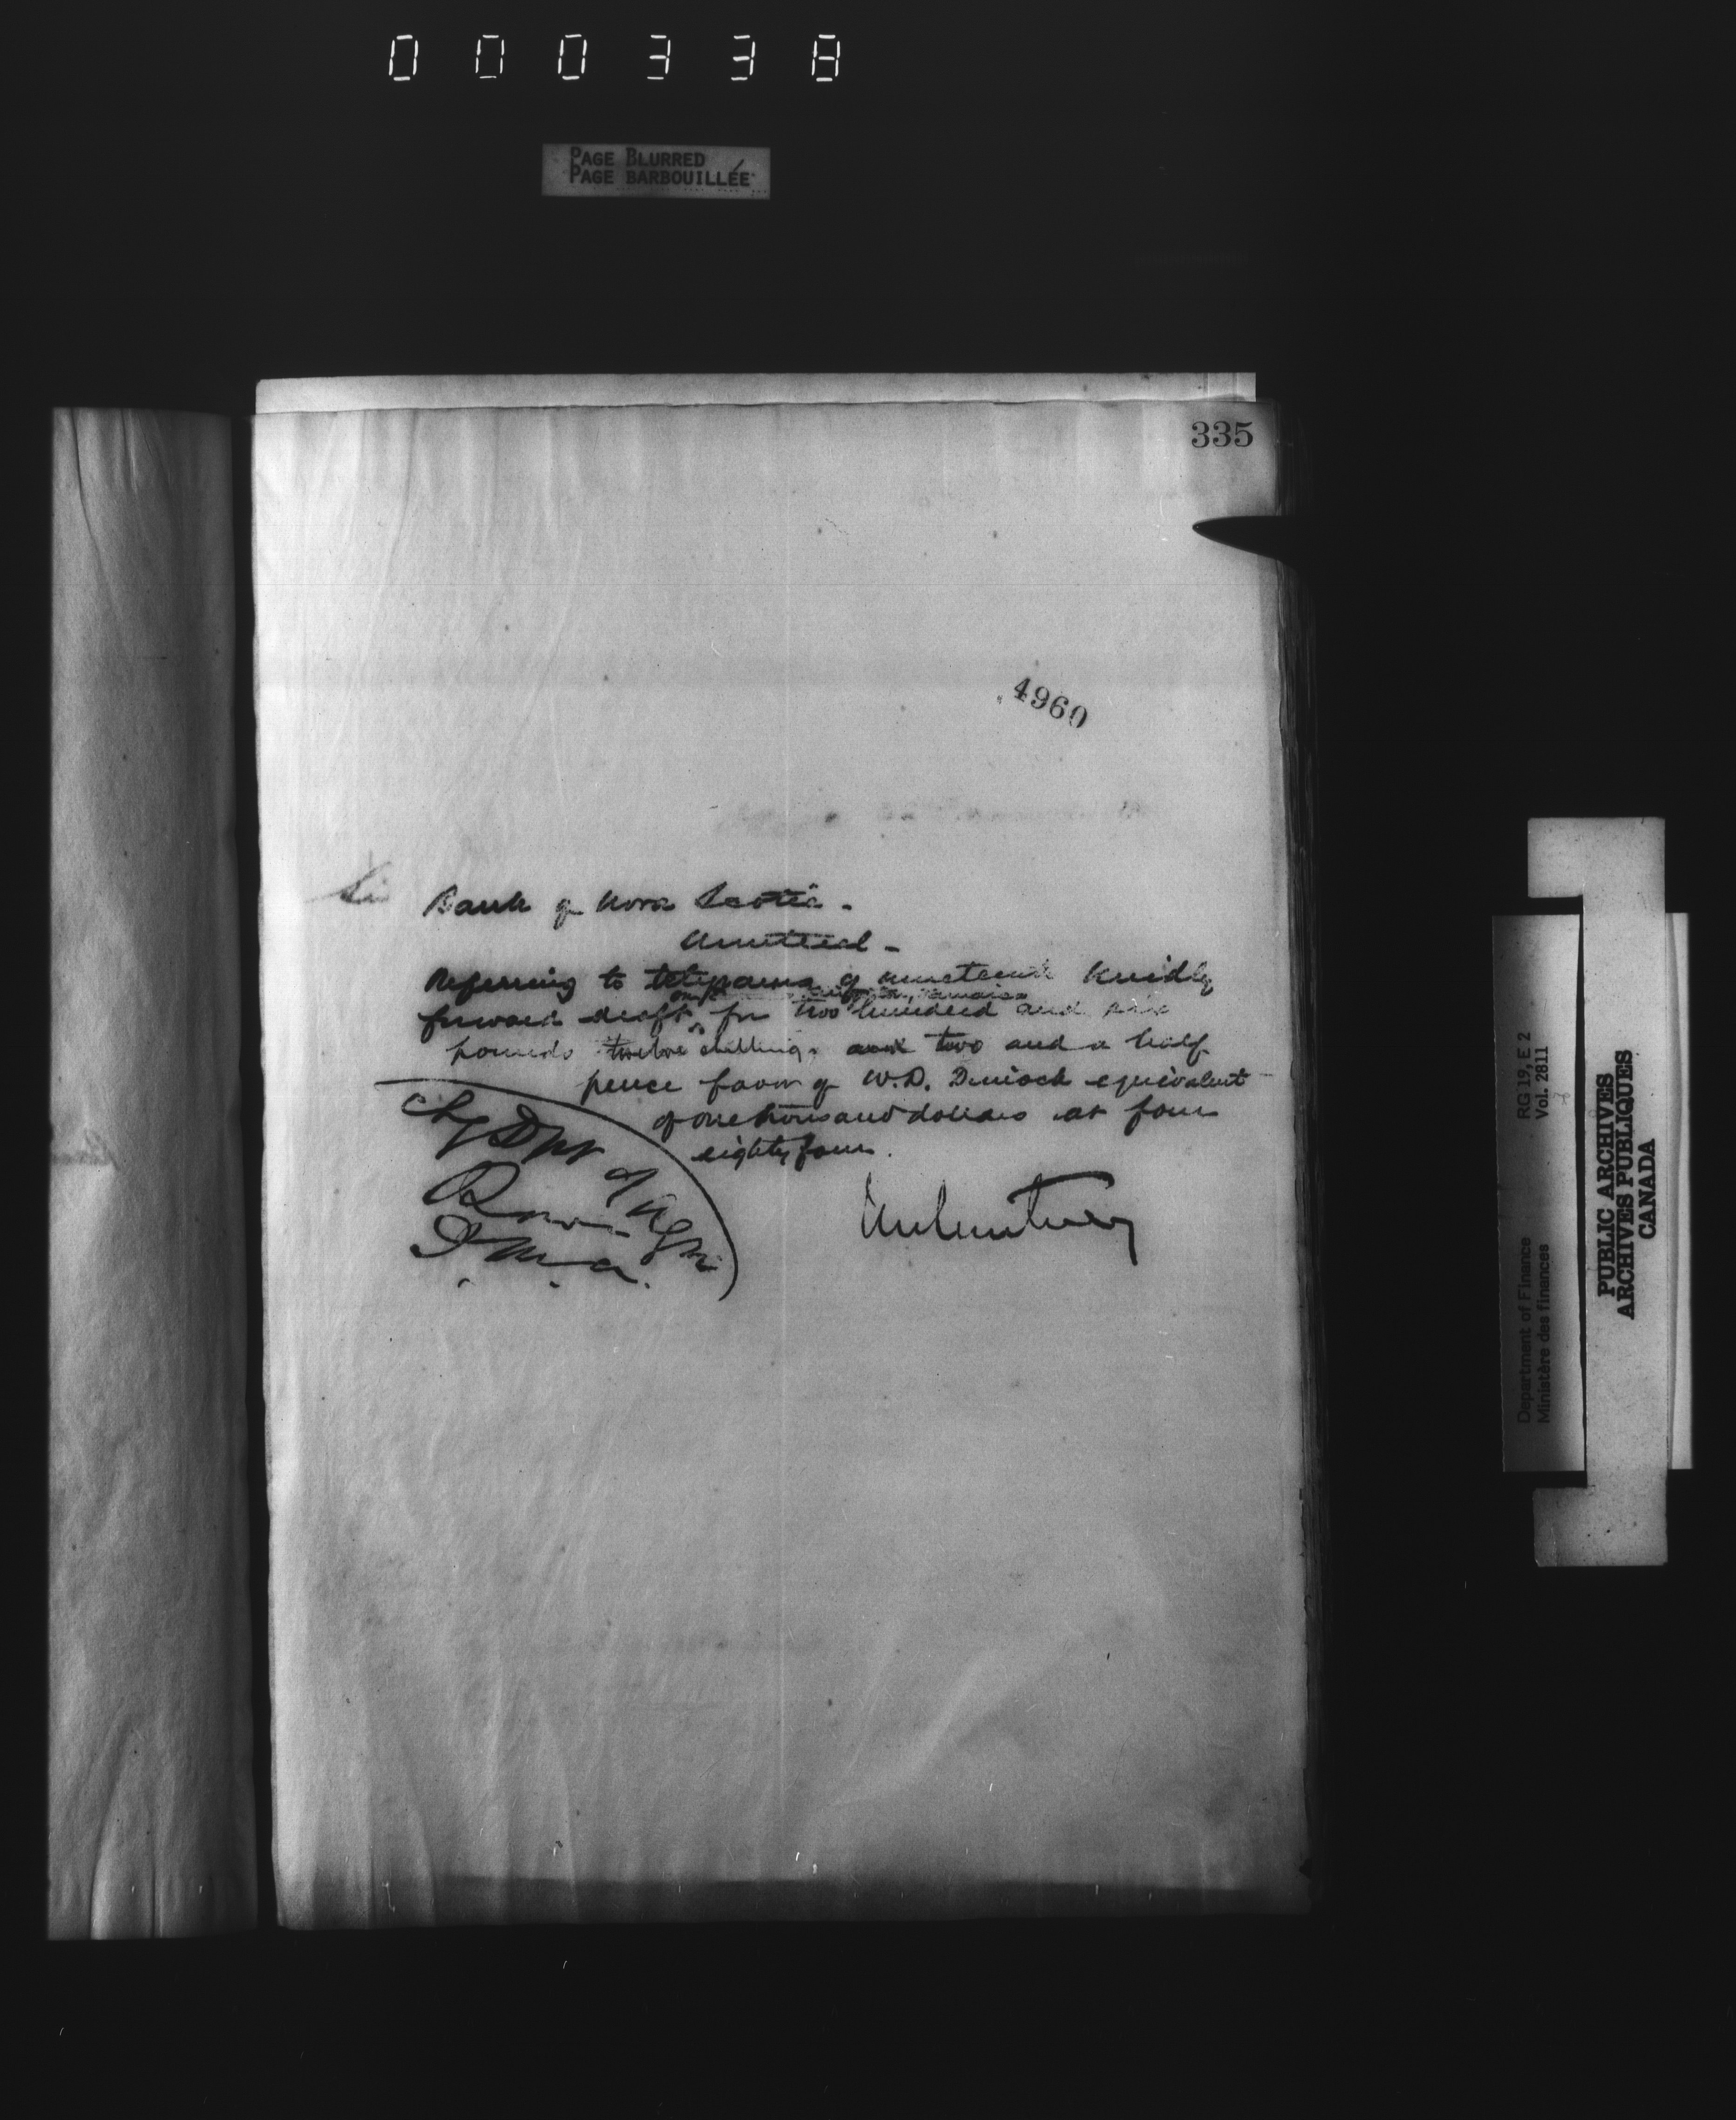 000338
PAGE BLURRED
PAGE BARBOUILLÉE
335
4960
Sir
Bank of Nova Scotia -
Montreal -
Referring to telegrams of nineteenth kindly
on Kingston, Jamaica
forward draft ^ for two hundred and six
pounds twelve shillings and two and a half
pence favor of W.D. Dimock equivalent
of one thousand dollars at four
eighty four.
Chg Dpt of Agr
J.M.C.
RG 19, E 2
Vol. 2811
Department of Finance
Ministère des finances
PUBLIC ARCHIVES
ARCHIVES PUBLIQUES
CANADA